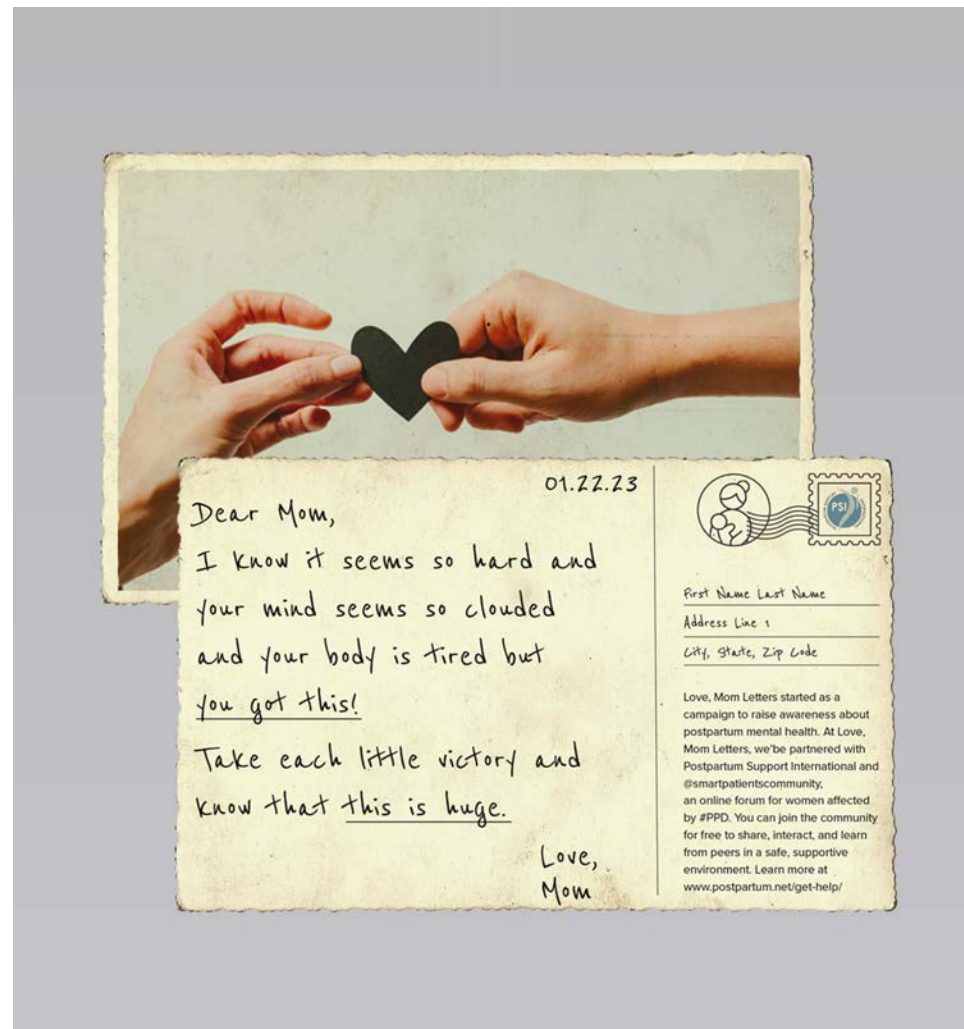 01.22.23
Dear Mom,
I know it seems so hard and
your mind seems so clouded
and your body is tired but
you got this!
Take each little victory and
know that this is huge.
Love,
Mom
PSI
First Name Last Name
Address Line 1
City, State, Zip Code
Love, Mom Letters started as a
campaign to raise awareness about
postpartum mental health. At Love,
Mom Letters, we'be partnered with
Postpartum Support International and
@smartpatientscommunity,
an online forum for women affected
by #PPD. You can join the community
for free to share, interact, and learn
from peers in a safe, supportive
environment. Learn more at
www.postpartum.net/get-help/